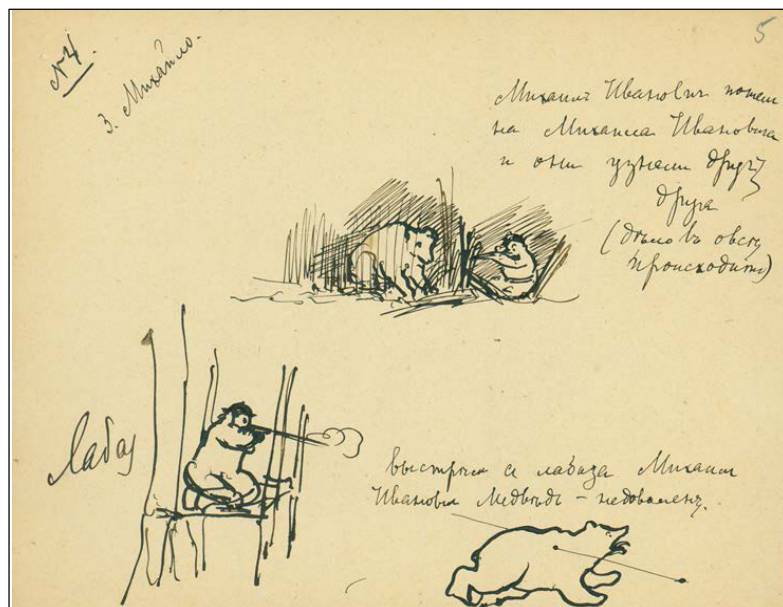 №4.
3. Михайло.
5
Михаилъ Ивановичъ пошелъ
на Михаила Ивановича
и они узнали другъ
друга
(дѣло въ овсѣ
происходитъ)
Лабаз
выстрѣлъ с лабаза Михаил
Ивановичъ Медвѣдь - недоволенъ.